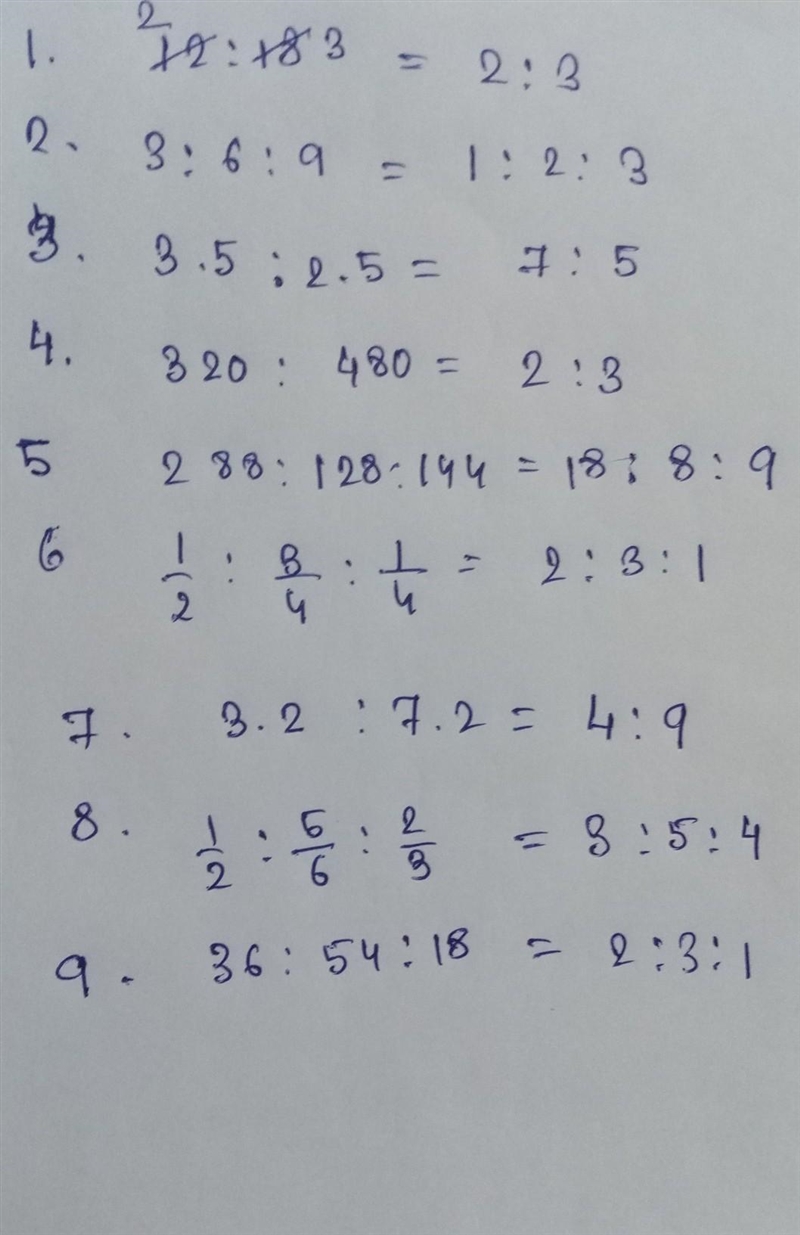 1. 2 12 : 18 3 = 2 : 3
2. 3 : 6 : 9 = 1 : 2 : 3
3. 3.5 : 2.5 = 7 : 5
4. 320 : 480 = 2 : 3
5 288 : 128 : 144 = 18 : 8 : 9
6 1/2 : 3/4 : 1/4 = 2 : 3 : 1
7. 3.2 : 7.2 = 4 : 9
8. 1/2 : 5/6 : 2/3 = 3 : 5 : 4
9. 36 : 54 : 18 = 2 : 3 : 1